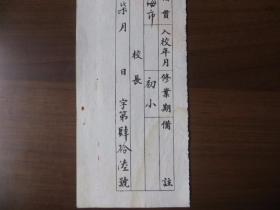 貫 入校年月 修業期 備 註
海市 初小
校長
柒月 日 字第肆拾陸號